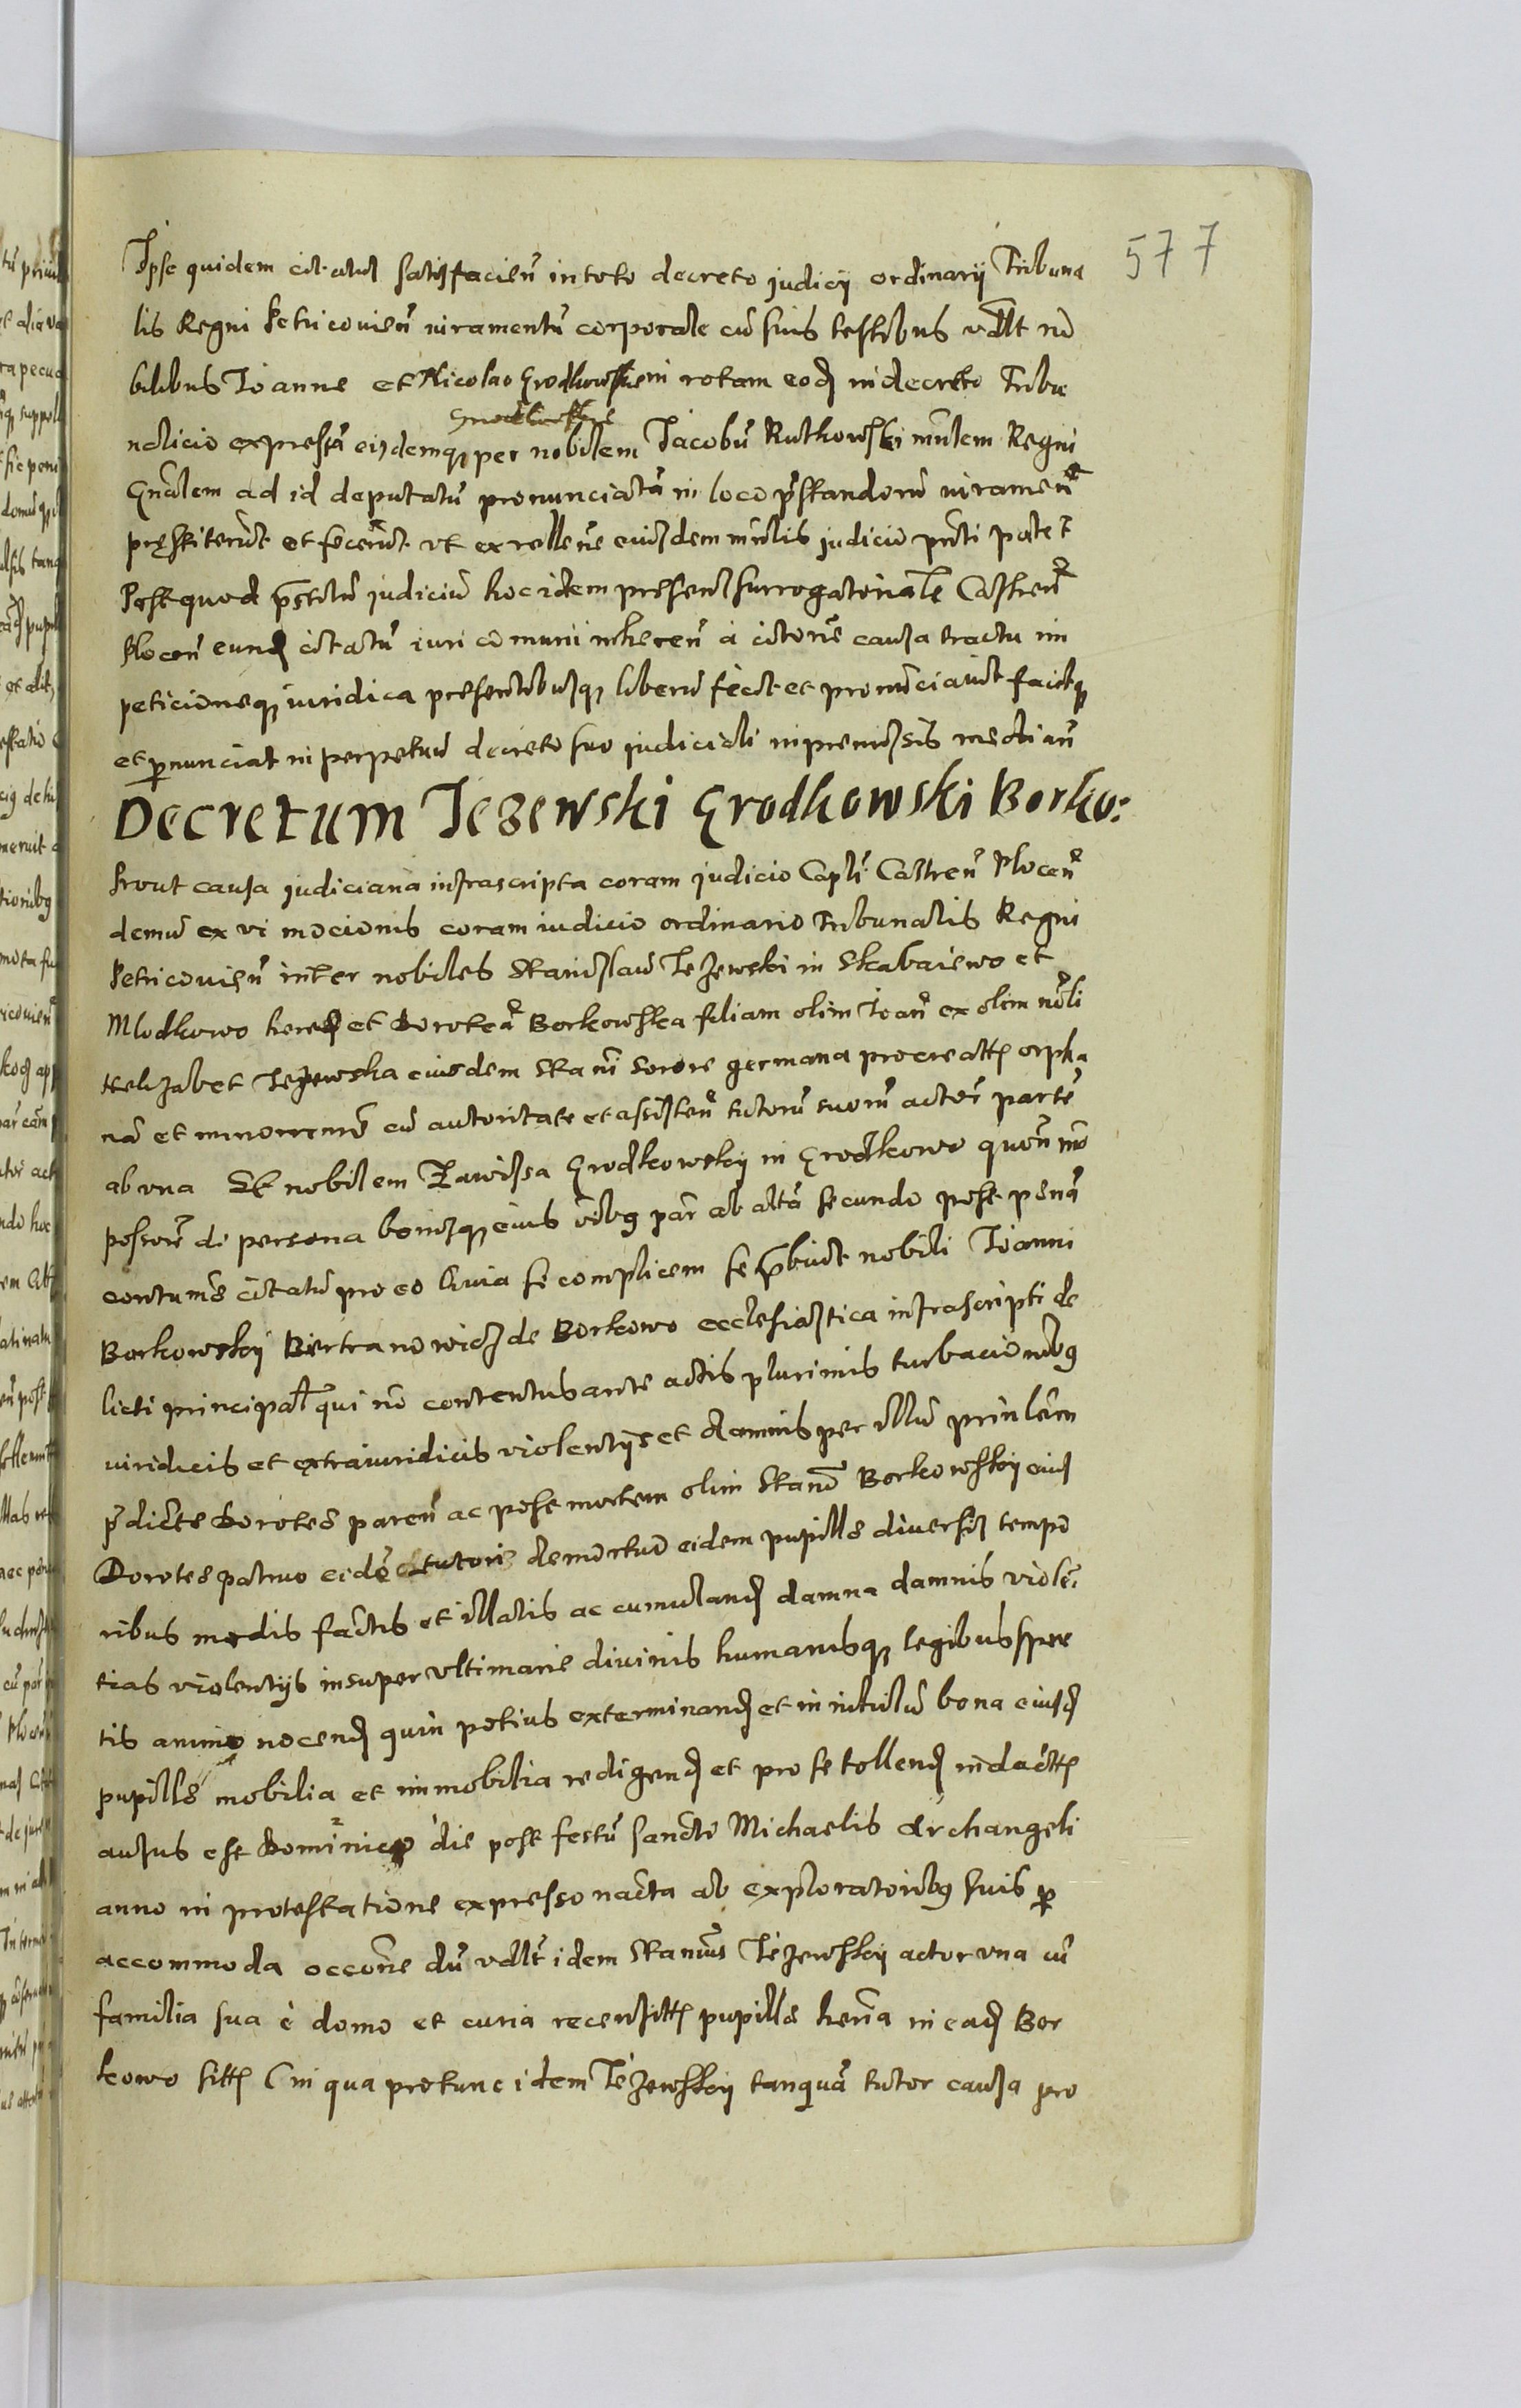 577
Ipse quidem citatus satisfacien in toto decreto judicij ordinarij Tribuna
lis Regni Petricovien iuramentu corporale cu suis testibus vdlt no
bilibus Joanne et Nicolao Grodkowskiemi rotam eod in decreto Tribu
Grodkowskie
nalicio expressa eisdemq per nobilem Jacobu Rutkowski mnlem Regni
Gnalem ad id deputatu pronunciata in loco pstandoru iuramen
prestiterut et fecerut vt ex rellene eiusdem mnlis judicio pnti patet
Post quod pstitu judiciu hoc idem presens surrogatoriale Castren
Plocen eund citatu iuri comuni inheren a citone causa tractu im
peticioneq iuridica presentibusq liberu fecit et pronunciavit facitq
et pnunciat in perpetuu decreto suo judiciali in premissis median
Decretum Jezewski Grodkowski Borko:
Prout causa judiciaria infrascripta coram judicio Capli Castren Plocen
demu ex vi mocionis coram iudicio ordinario Tribunalis Regni
Petricovien inter nobiles Stanislau Jezewski in Skabaiewo et
Mlodkowo hered et Dorotea Borkowska filiam olim Joan ex olim nobli
Helizabet Jezewska eiusdem Stani sorore germana procreatt orpha
na et minorenne cu autoritate et assisten tutoru suoru actore parte
ab vna Et nobilem Zawissa Grodkowsky in Grodkowo quon no
possore de persona bonisq eius oibg par ab alta secundo post pena
contumae citatu pro eo Quia se complicem se pbuit nobili Joanni
Borkowsky Birtranowicz de Borkowo ecclesiastica infrascripti de
licti principal qui no contentus ante actis plurimis turbacionibg
iuridicis et extraiuridicis violentijs et damnis per illu prinlem
pdicte Dorotee paren ac post mortem olim Stani Borkowsky eius
Dorotee patruo eide et tutori demortuo eidem pupille diversis tempo
ribus modis factis et illatis ac cumuland damna damnis violen
tias violentijs insuper vltimarie divinis humanisq legibus spre
tis animo nocend quin potius exterminand et in nihilu bona eiusd
pupille mobilia et immobilia redigend et pro se tollend indactt
ausus est Dominico die post festu sancti Michaelis Archangeli
anno in protestatione expresso nacta ab exploratoribg suis p
accommoda occone du vdlt idem Stanius Jezewsky actor vna cu
familia sua e domo et curia recensitt pupille heria in ead Bor
kowo sitt (in qua protunc idem Jezewsky tanqua tutor causa pro